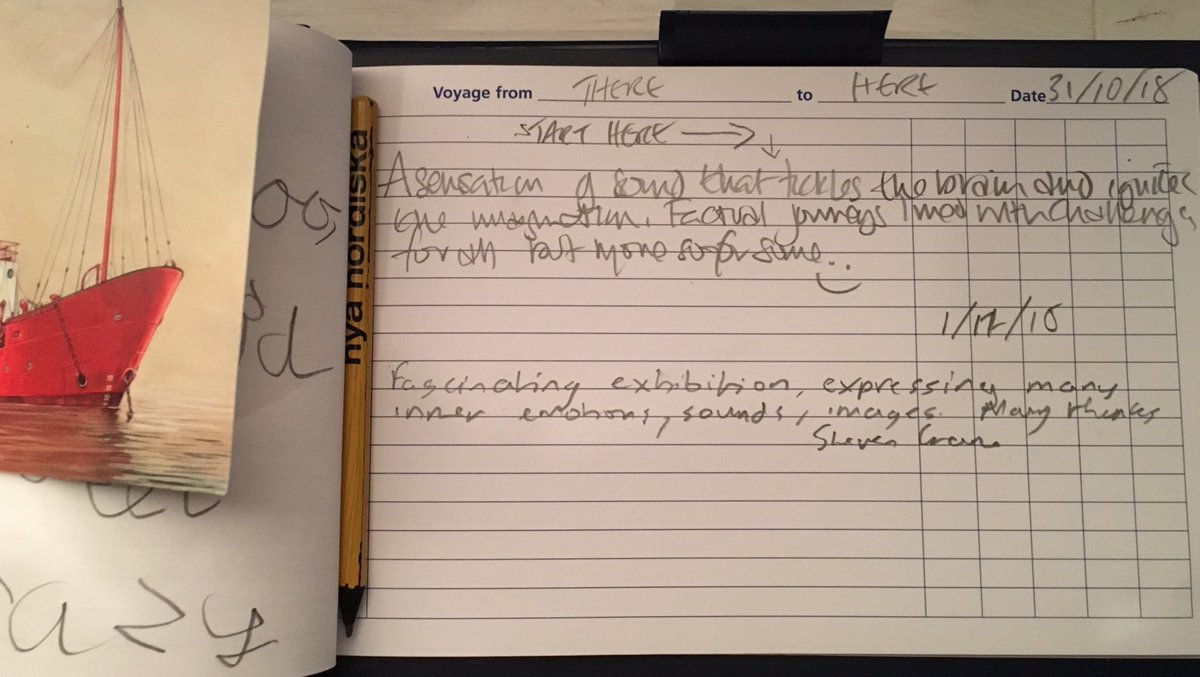 Voyage from THERE to HERE Date 31/10/18
START HERE
A sensation of sound that tickles the brain and ignites
the imagination. Factual journeys lined with challenges
for all but more so for some..
1/12/18
Fascinating exhibition, expressing many
inner emotions, sounds, images. Many thanks
Steven
nya nordiska
azy